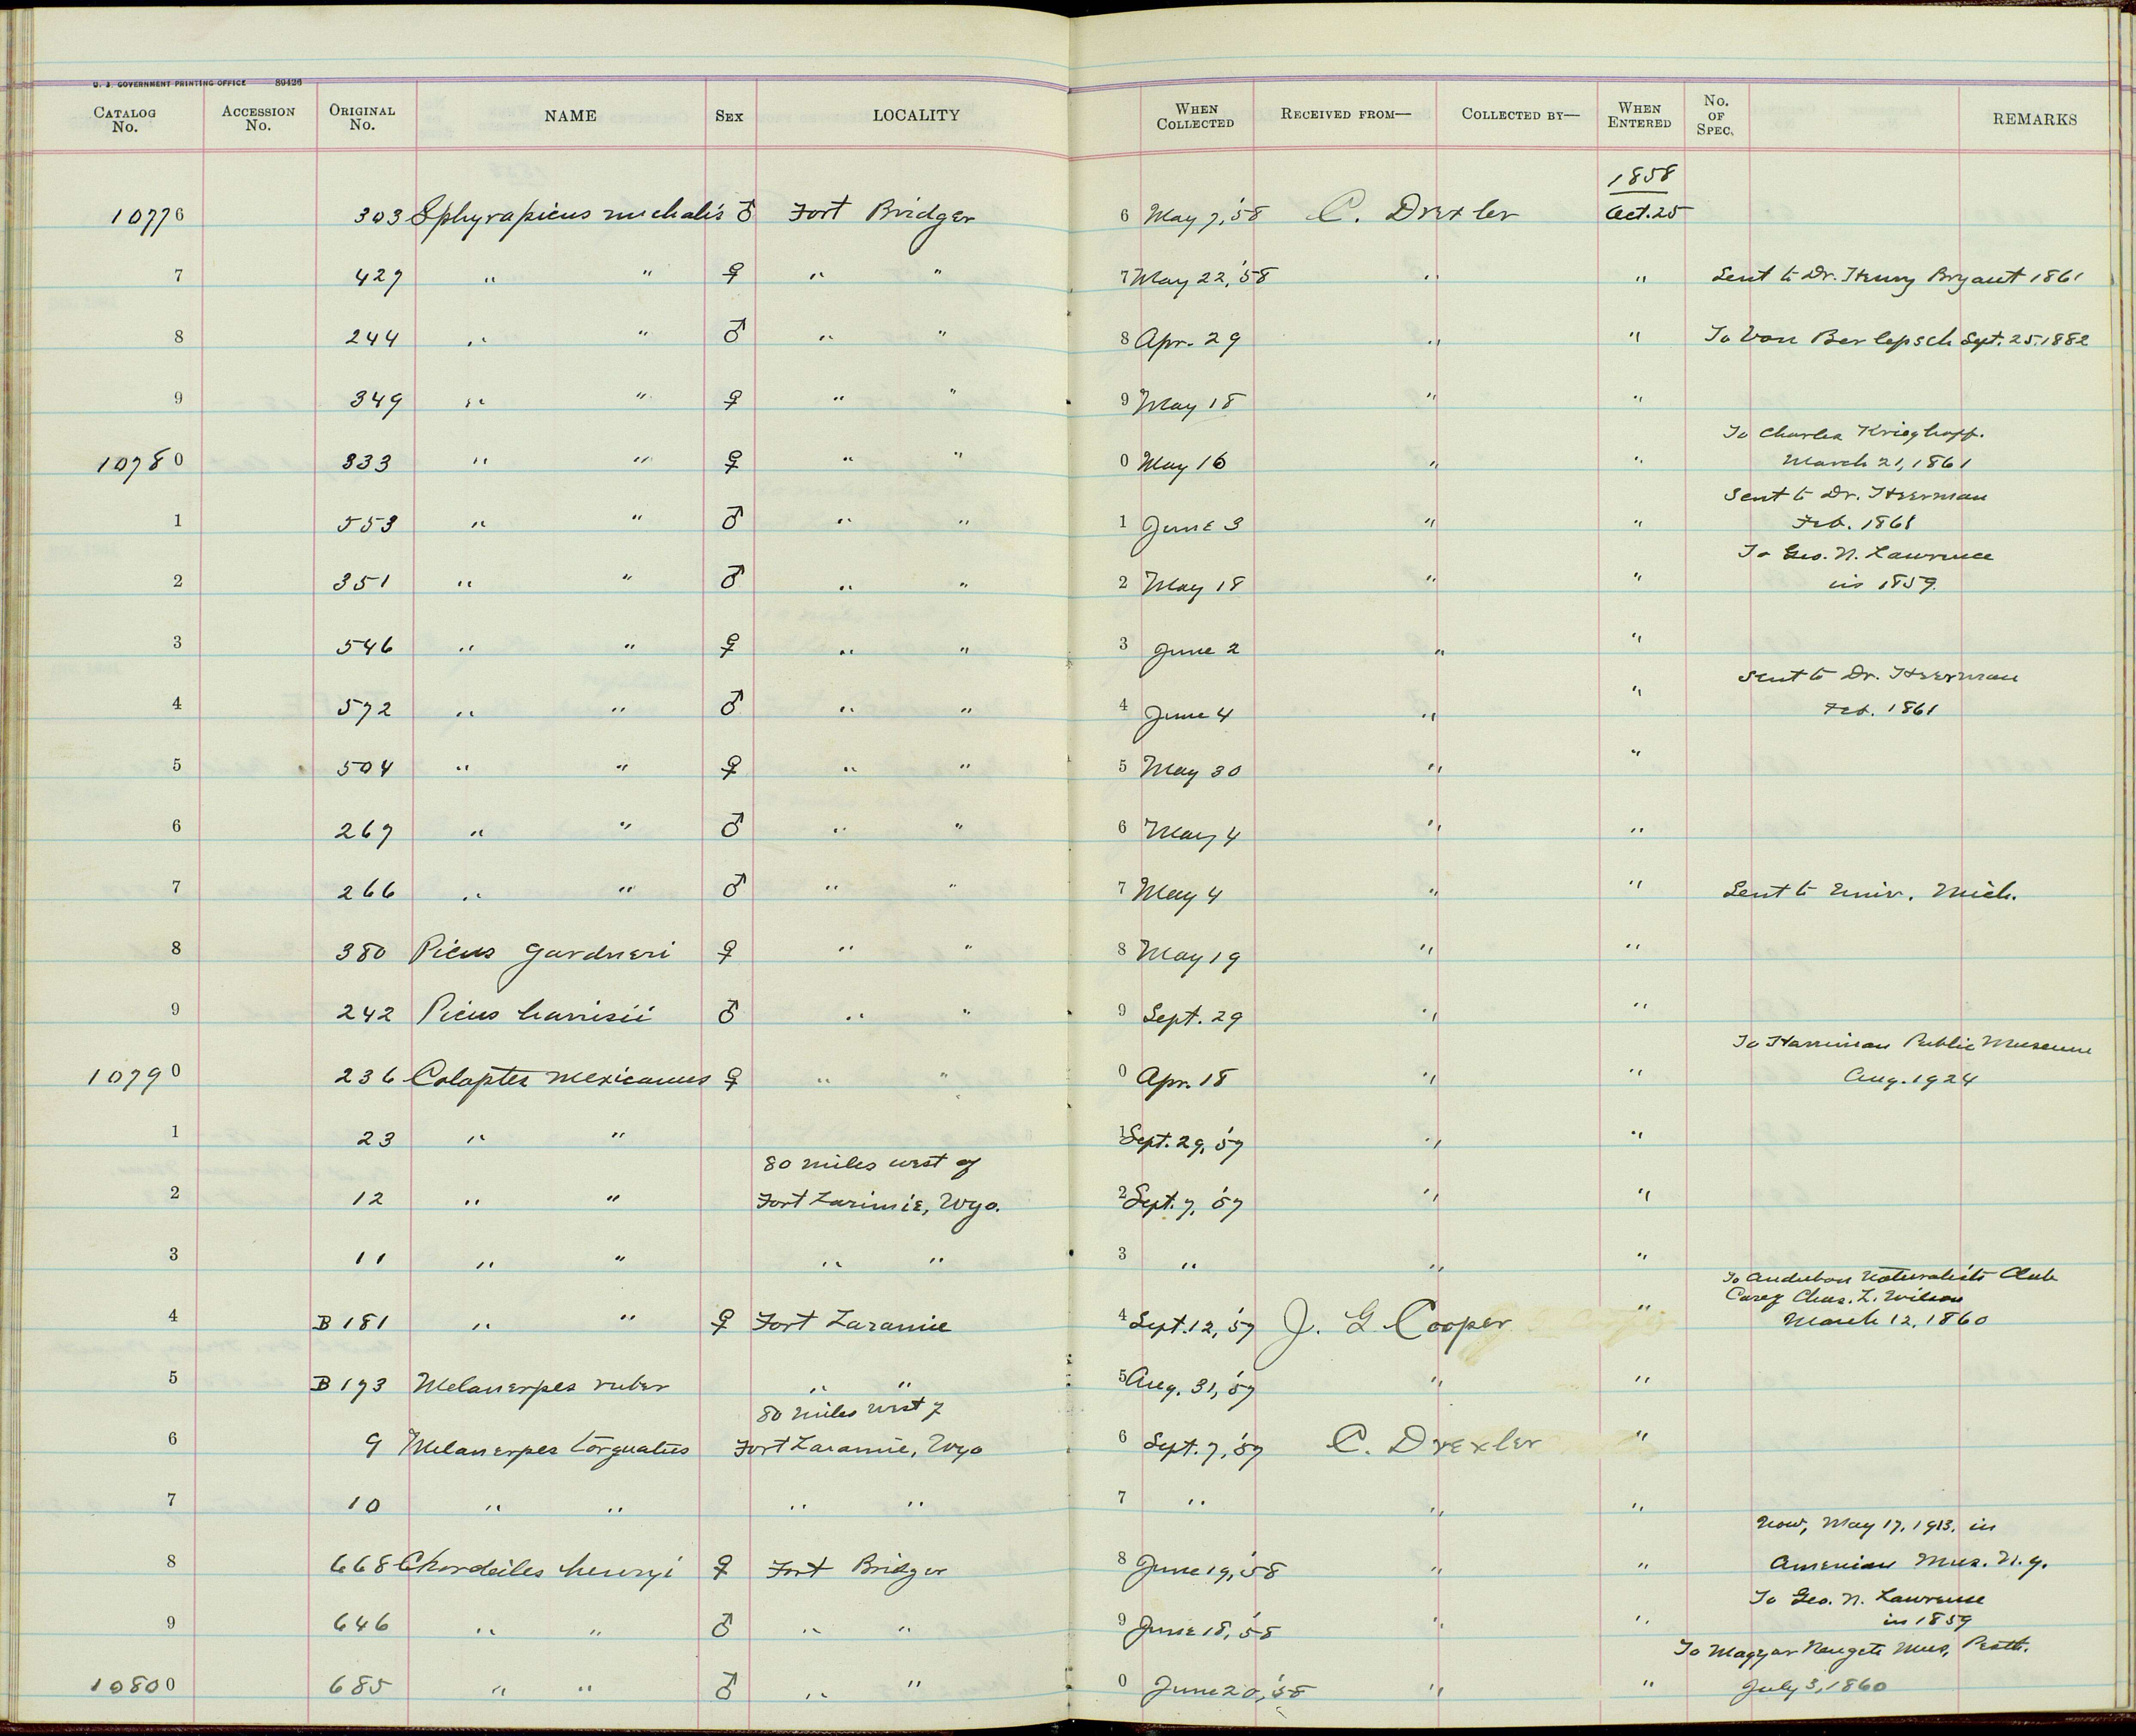 U. S. GOVERNMENT PRINTING OFFICE 89426
CATALOG No. ACCESSION No. ORIGINAL No. NAME SEX LOCALITY WHEN COLLECTED RECEIVED FROM— COLLECTED BY— WHEN ENTERED No. OF SPEC. REMARKS
1858
10776 303 Sphyrapicus nuchalis ♂ Fort Bridger 6 May 7, '58 C. Drexler Oct. 25
7 427 " " ♀ " " 7 May 22, '58 " " Sent to Dr. Henry Bryant 1861
8 244 " " ♂ " " 8 Apr. 29 " " To Von Berlepsch Sept. 25. 1882
9 349 " " ♀ " " 9 May 18 " "
To Charles Krieghoff.
10780 333 " " ♀ " " 0 May 16 " " March 21, 1861
Sent to Dr. Heerman
1 553 " " ♂ " " 1 June 3 " " Feb. 1861
To Geo. N. Lawrence
2 351 " " ♂ " " 2 May 18 " " in 1859.
3 546 " " ♀ " " 3 June 2 " "
Sent to Dr. Heerman
4 572 " " ♂ " " 4 June 4 " " Feb. 1861
5 504 " " ♀ " " 5 May 30 " "
6 267 " " ♂ " " 6 May 4 " "
7 266 " " ♂ " " 7 May 4 " " Sent to Univ. Mich.
8 380 Picus gardneri ♀ " " 8 May 19 " "
9 242 Picus harrisii ♂ " " 9 Sept. 29 " "
To Harriman Public Museum
10790 236 Colaptes mexicanus ♀ " " 0 Apr. 18 " " Aug. 1924
1 23 " " 1 Sept. 29, '57 " "
80 miles west of
2 12 " " Fort Larimie, Wyo. 2 Sept. 7, '57 " "
3 11 " " " " 3 " " "
To Audubon Naturalists Club
Care of Chas. L. Wilson
4 B 181 " " ♀ Fort Laramie 4 Sept. 12, '57 J. G. Cooper " March 12, 1860
5 B 173 Melanerpes ruber " " 5 Aug. 31, '57 " "
80 miles west of
6 9 Melanerpes torquatus Fort Laramie, Wyo 6 Sept. 7, '57 C. Drexler "
7 10 " " " " 7 " " "
Now, May 17, 1913. in
8 668 Chordeiles henryi ♀ Fort Bridger 8 June 19, '58 " " American Mus. N.Y.
To Geo. N. Lawrence
9 646 " " ♂ " " 9 June 18, '58 " " in 1859
To Magyar Mus, Pesth.
10800 685 " " ♂ " " 0 June 20, '58 " " July 3, 1860